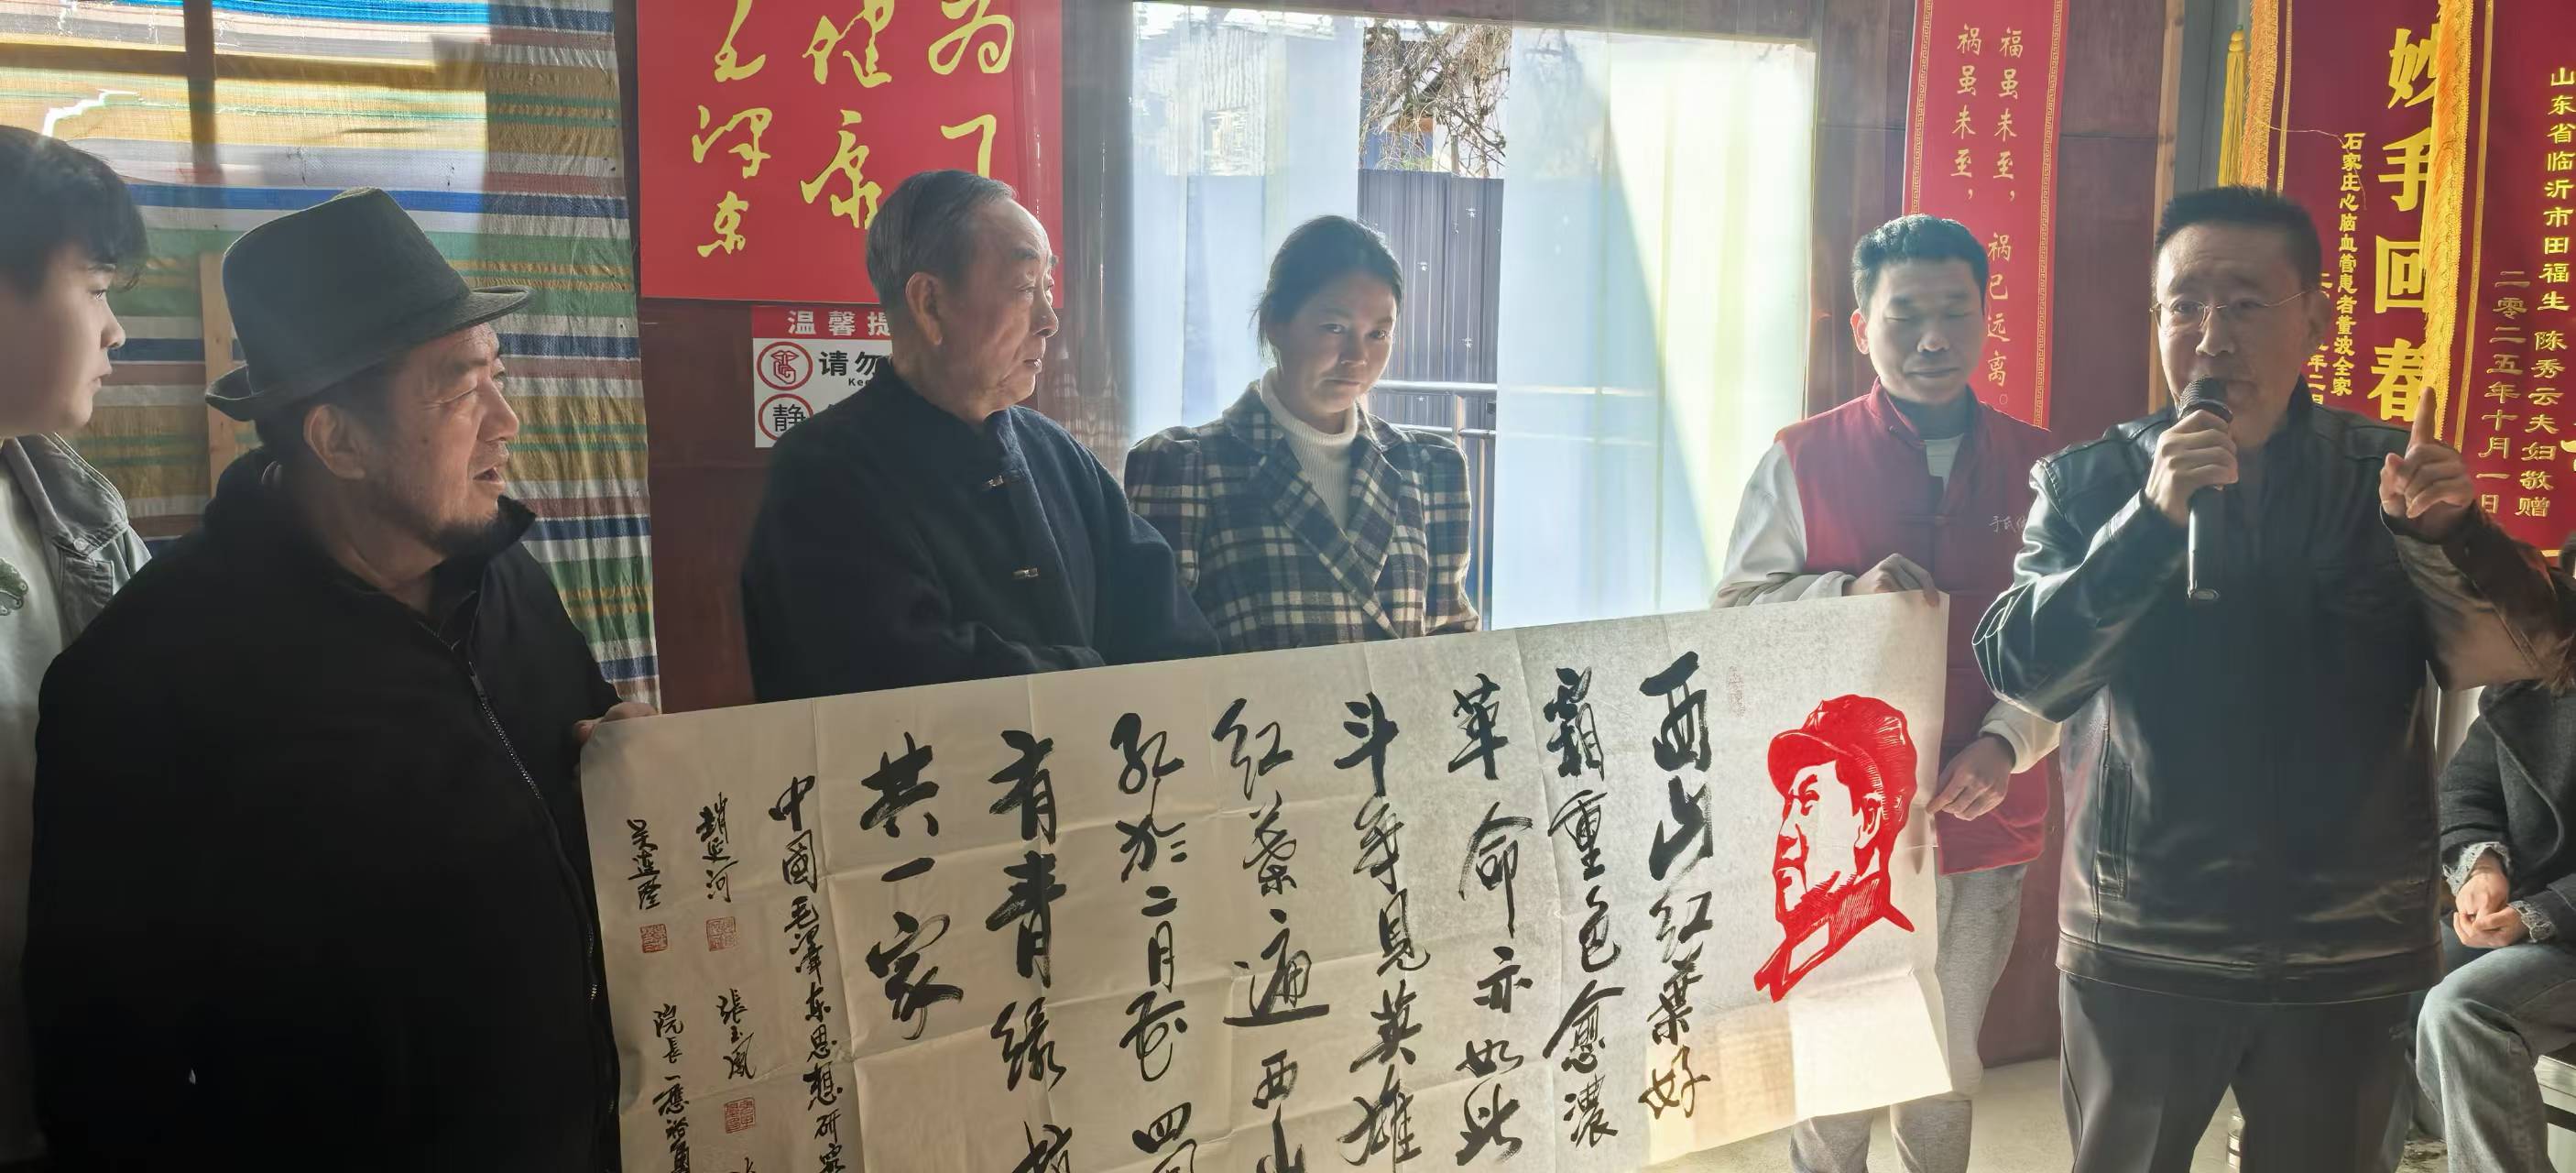 为了
健康
毛泽东
温馨提
请勿
Kee
静
福虽未至，祸已远离。
祸虽未至，
妙手回春
石家庄心脑血管患者董波全家
山东省临沂市田福生 陈秀云夫妇敬赠
二零二五年十月一日
西山红葉好
霜重色愈濃
革命亦如此
斗争見英雄
红葉遍西山
紅於二月花
四
有青緑
共一家
中國毛澤东思想研究
趙延河
張玉鳳
院長